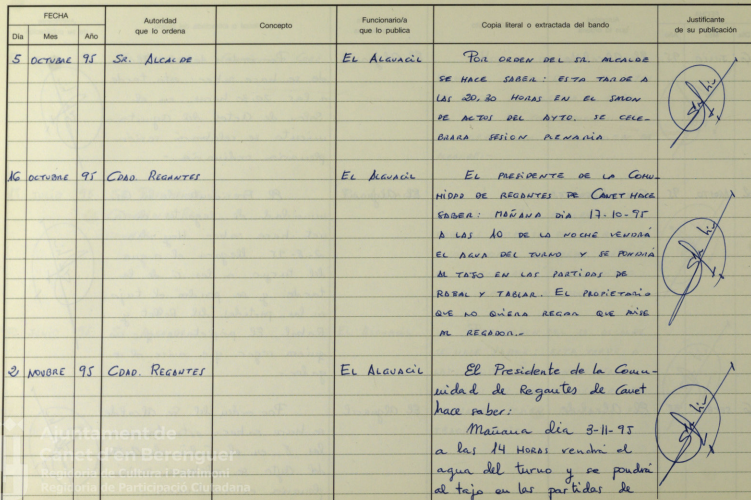 FECHA
Día Mes Año
Autoridad
que lo ordena
Concepto
Funcionario/a
que lo publica
Copia literal o extractada del bando
Justificante
de su publicación
5 OCTUBRE 95 SR. ALCALDE EL ALGUACIL POR ORDEN DEL SR. ALCALDE
SE HACE SABER: ESTA TARDE A
LAS 20,30 HORAS EN EL SALON
DE ACTOS DEL AYTO. SE CELE-
BRARA SESION PLENARIA
16 OCTUBRE 95 CDAD. REGANTES EL ALGUACIL EL PRESIDENTE DE LA COMU-
NIDAD DE REGANTES DE CANET HACE
SABER: MAÑANA DIA 17-10-95
A LAS 10 DE LA NOCHE VENDRÁ
EL AGUA DEL TURNO Y SE PONDRÁ
AL TAJO EN LAS PARTIDAS DE
RABAL Y TABLAR. EL PROPIETARIO
QUE NO QUIERA REGAR QUE AVISE
AL REGADOR.-
2 NOVBRE 95 CDAD. REGANTES EL ALGUACIL El Presidente de la Comu-
nidad de Regantes de Canet
hace saber:
Mañana dia 3-11-95
a las 14 HORAS vendrá el
agua del turno y se pondrá
al tajo en las partidas de
Ajuntament de
Canet d'en Berenguer
Regidoria de Cultura i Patrimoni
Regidoria de Participació Ciutadana